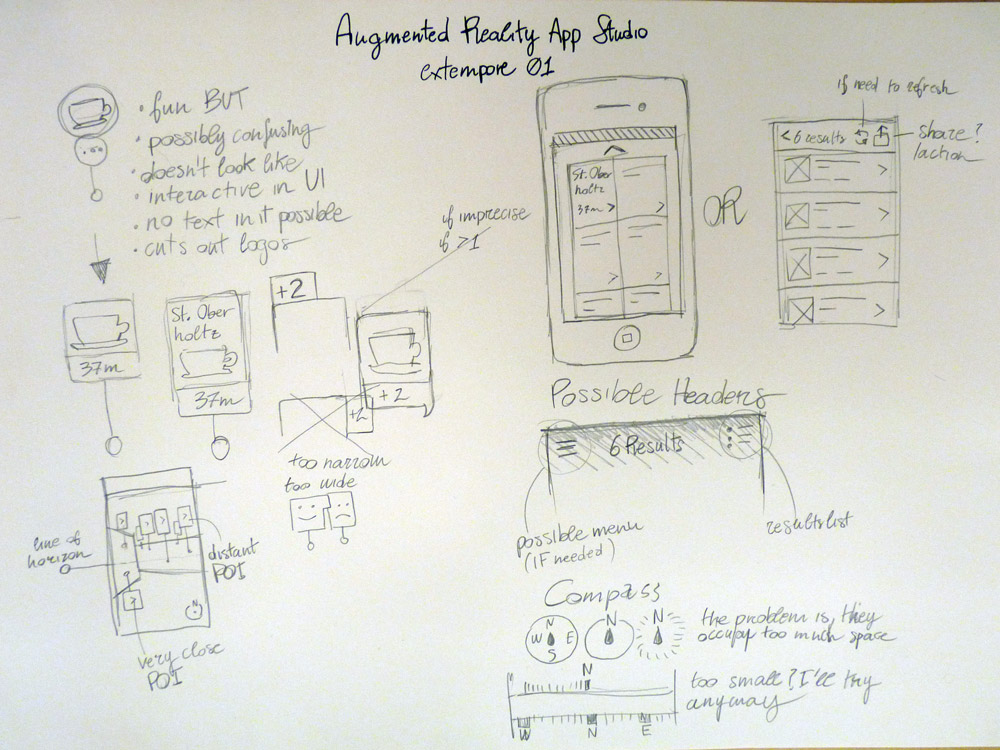 Augmented Reality App Studio
extempore 01
• fun BUT
• possibly confusing
• doesn't look like
• interactive in UI
• no text in it possible
• cuts out logos
37m
St. Ober
holtz
37m
+2
+2
+2
if imprecise
if >1
too narrow
too wide
line of
horizon
distant
POI
N
very close
POI
St. Ober
holtz
37m >
OR
if need to refresh
< 6 results
share?
/action
Possible Headers
6 Results
possible menu
(IF needed)
results list
Compass
N
W E
S
N
N
the problem is, they
occupy too much space
N
W N E
too small? I'll try
anyway